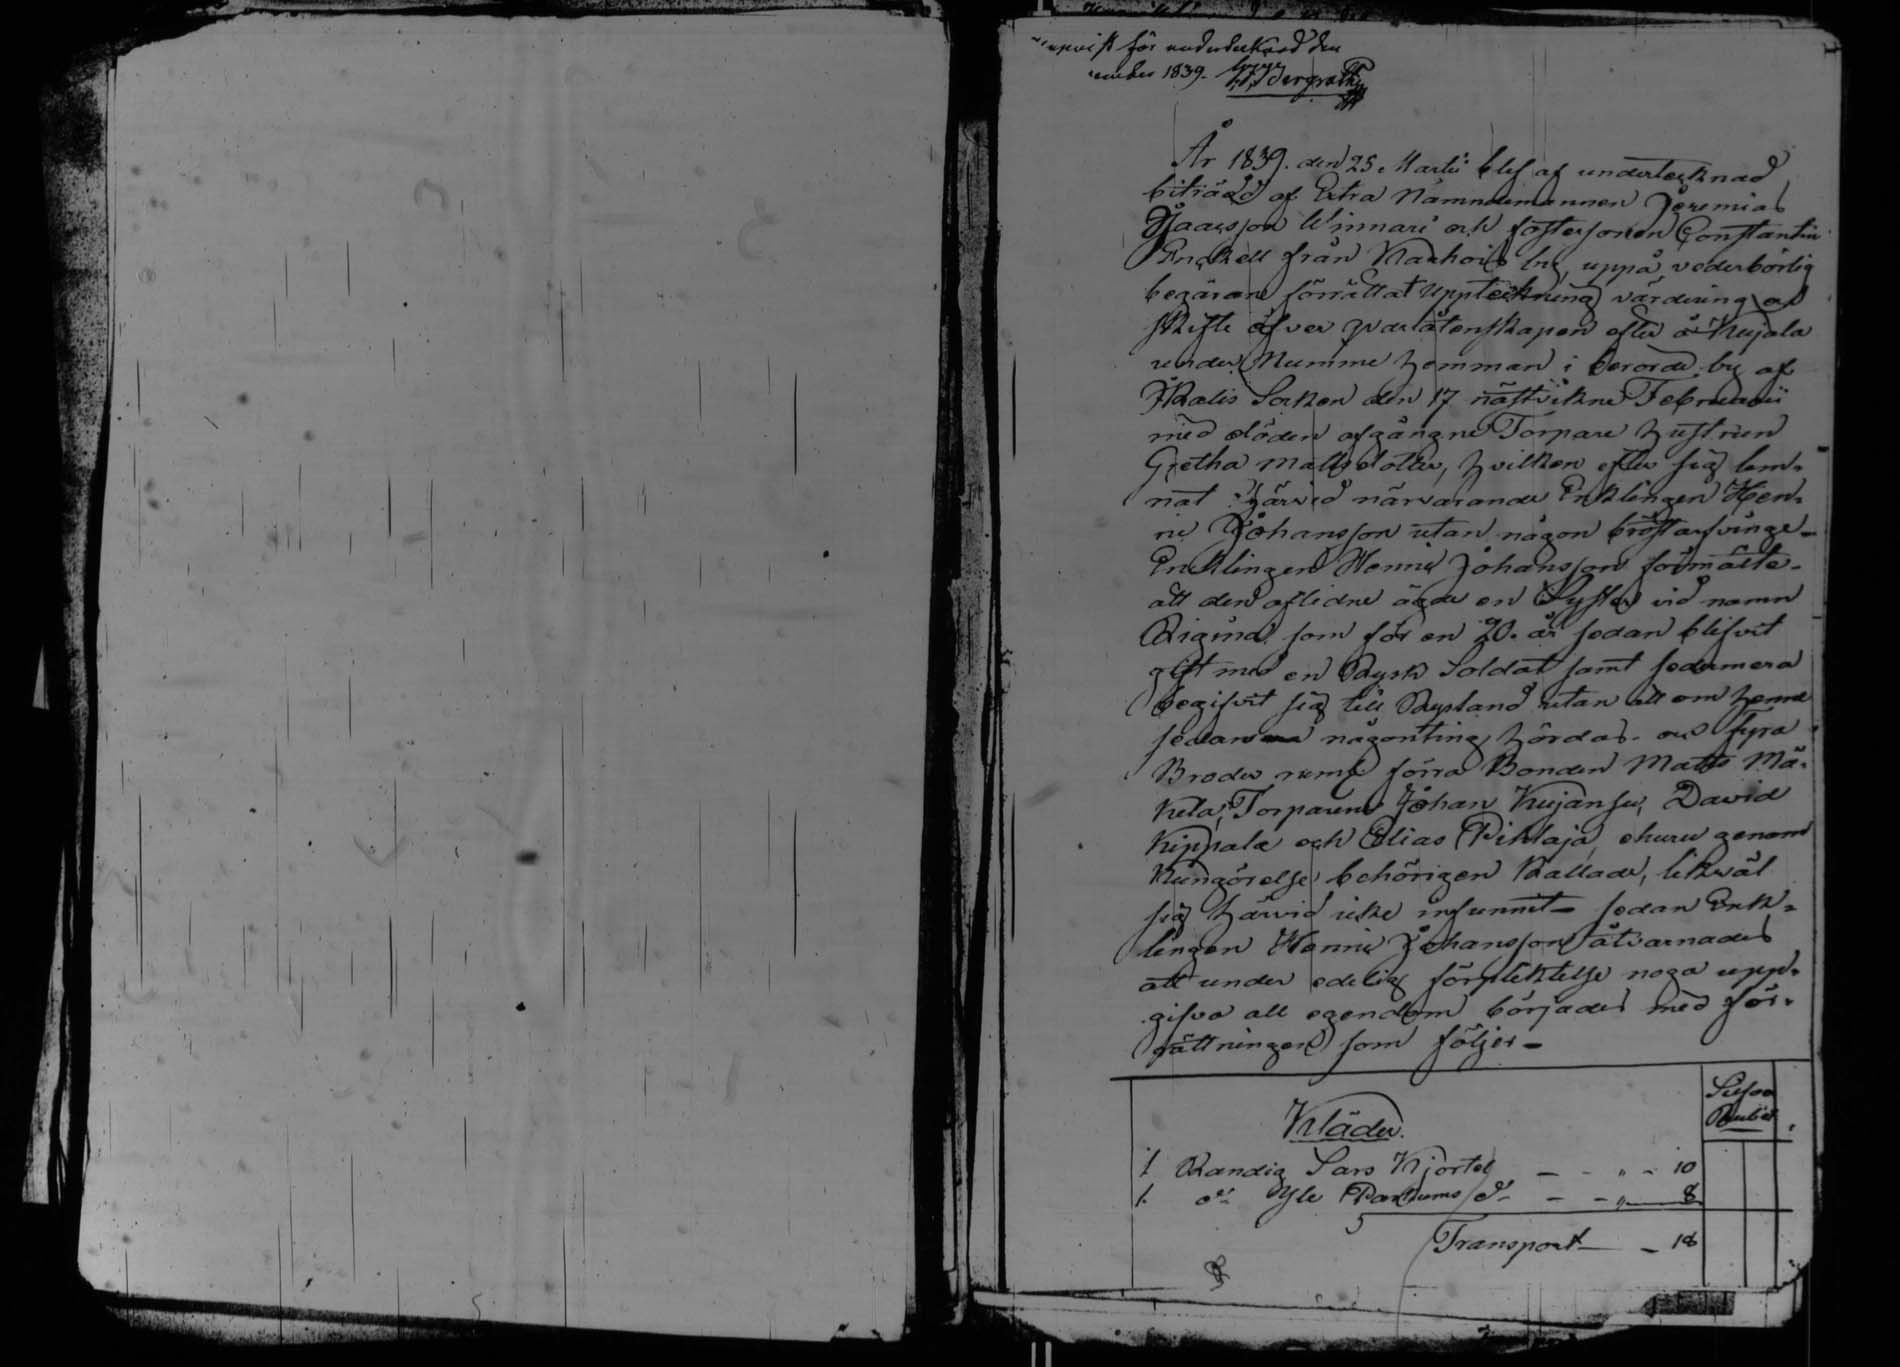 för undertecknad den
ember 1839.
År 1839. den 25. Martii blef af undertecknad
biträdd af Extra Nämndemannen Jeremias
Isaacsson Winnari och fostersonen Constantin
Enckell från Karhois by, uppå vederbörlig
begäran förrättat Uppteckning värdering och
skifte öfver qvarlåtenskapen efter å Kujala
under Numme hemman i berörde by af
Ikalis Socken den 17 nästvikne Februarii
med döden afgångne Torpare hustrun
Gretha Mattsdotter, hvilken efter sig lem-
nat härvid närvarande Enklingen Hen-
ric Johansson utan någon bröstarfvinge -
Enklingen Henric Johansson förmälte -
att den aflidne ägde en Syster vid namn
Rigina som för en 20. år sedan blifvit
gift med en Rysk Soldat samt sedermera
begifvit sig till Ryssland utan att om henne
sedan någonting hördas. och fyra
Broder neml förra Bonden Matts Mä-
kelä, Torparene Johan Kujansu, David
Kippala och Elias Pihlaja, ehuru genom
Kungörelse behörigen Kallade, likväl
sig härvid icke infunnit - sedan Enk-
lingen Henric Johansson åtvarnades
att under edelig förpliktelse noga upp-
gifva all egendom börjades med för-
rättningen som följer -
Silfver
Rubel
Kläder.
1 Randig Sars Kjortel - - " - 10
1. do Yle do - - " 8
Transport - - 18